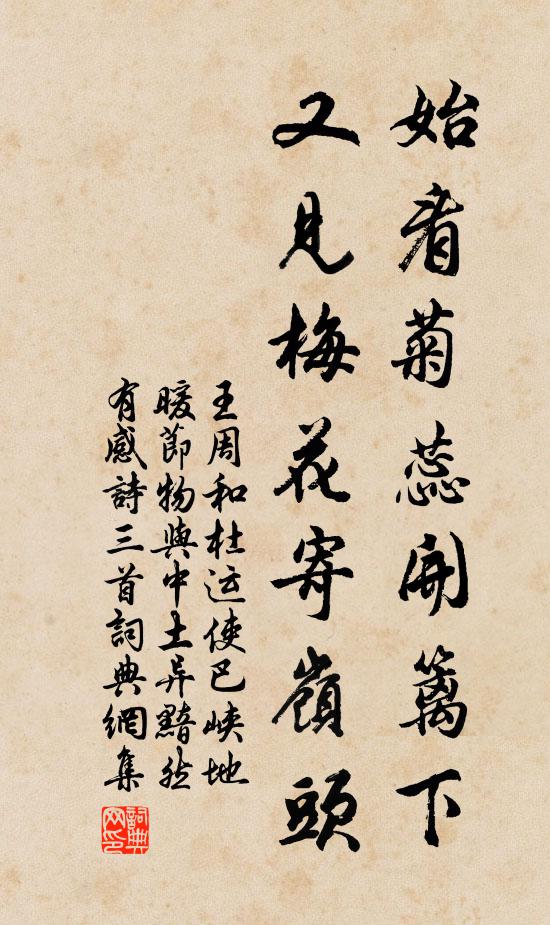 始看菊蕊開籬下
又見梅花寄嶺頭
王周和杜运使巴峡地
暖節物與中土异黯然
有感詩三首詞典網集
詞典
网印